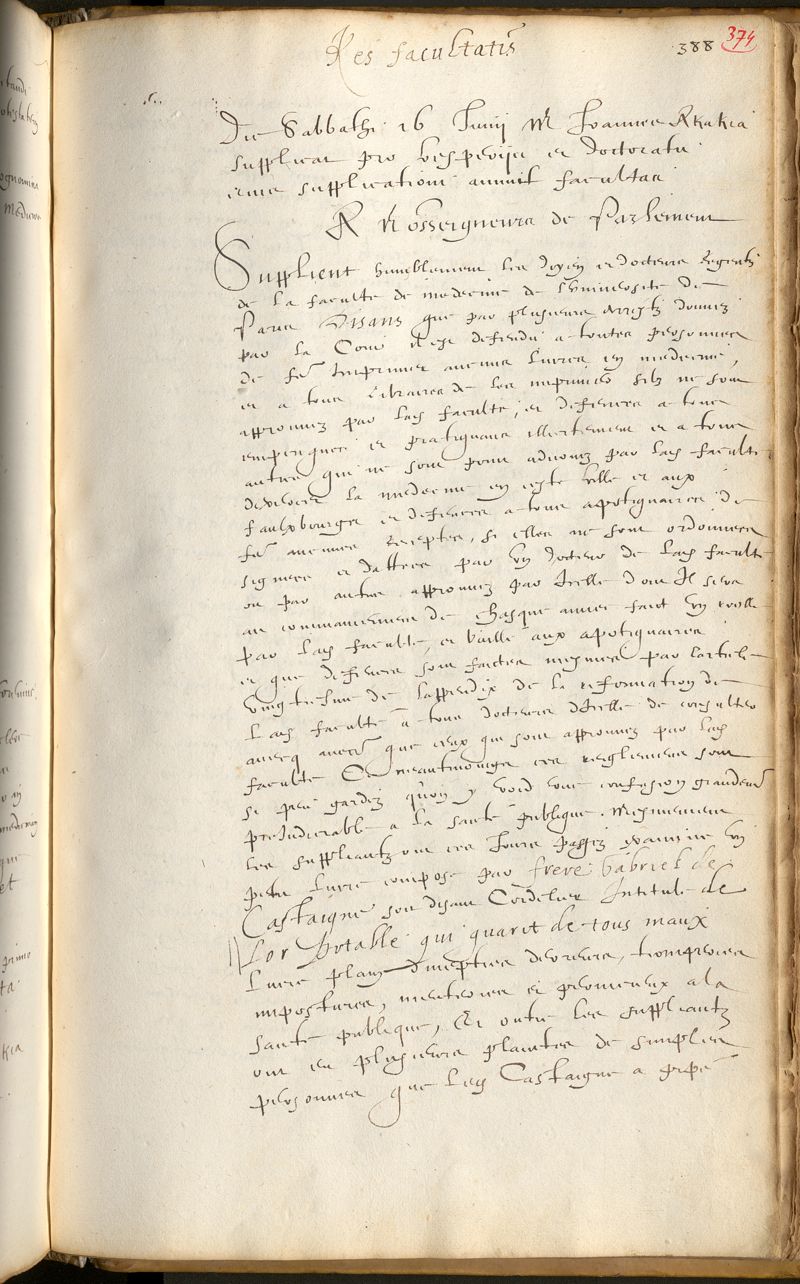 Res facultatis
388 374
Die Sabbathi 16 Junij M Joannes Akakia
supplicat pro vesperijs et doctoratu
cuius supplicationi annuit facultas
A Nosseigneurs de Parlement
Supplient humblement les doyen et docteurs Regents
de la faculté de medecine de l'université de
Paris Disans que par plusieurs arrestz donnez
par la Cour il est defendu a toutes personnes
de fe Imprimer aucuns livres en medecine,
et a tous libraires de les imprimer silz ne sont
approuvez par lad faculté, et defenses a tous
empiriques et pratiquans illicitement et a tous
autres qui ne sont point advouez par lad faculté
dexercer la medecine en ceste ville et aux
faulxbourgs et defenses a tous apotiquaires de
fe aucunes receptes, si elles ne sont ordonnees
signees et dattees par un docteur de lad faculté
ou par autre approuvez par Icelle dont Il sera
au commancement de chasque annee faict un rolle
par lad faculté, et baillé aux apotiquaires
et que defenses sont faictes mesmes par larticle
vingtiesme de lappendix de la reformation de
lad faculté a tous docteurs dIcelle de consulter
avecq autres que ceux qui sont approuvez par lad
faculté Et neantmoings ces reglemens sont
si peu gardez quon y void une confusion grandemt
preJudiciable a la santé publique. Mesmement
les suppliantz ont ces Jours passez examiné un
petit livre composé par frere Gabriel de
Castaigne soy disant Cordelier Intitulé de
Lor Potable qui guarit de tous maux
livre plain dinepties, tromperies
impostures, menteries et pernicieux a la
santé publique, Et outre les suppliantz
ont eu plusieurs plaintes de simples
personnes que led Castaigne a